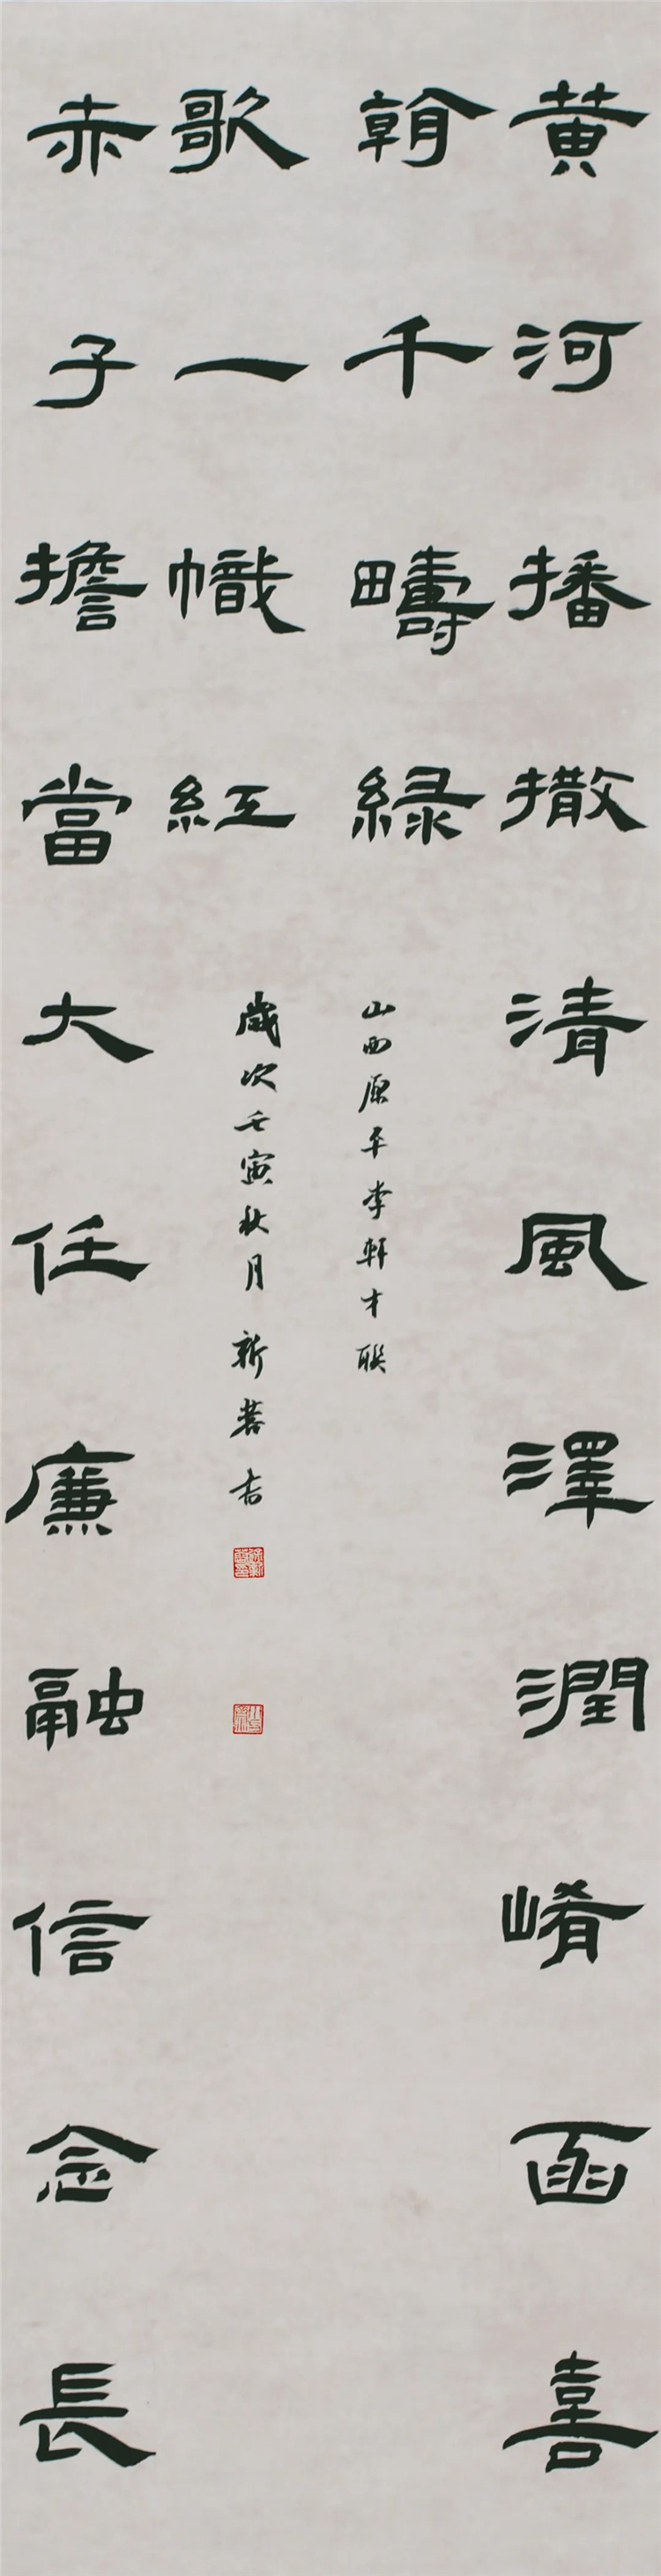 黄河播撒清風澤潤崤函喜
看千疇緑
山西原平李軒才聯
赤子擔當大任廉融信念長
歌一幟紅
歲次壬寅秋月 新